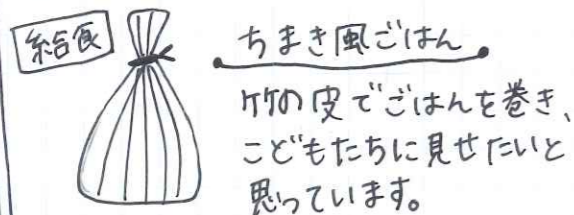 給食
ちまき風ごはん
竹の皮でごはんを巻き、
こどもたちに見せたいと
思っています。